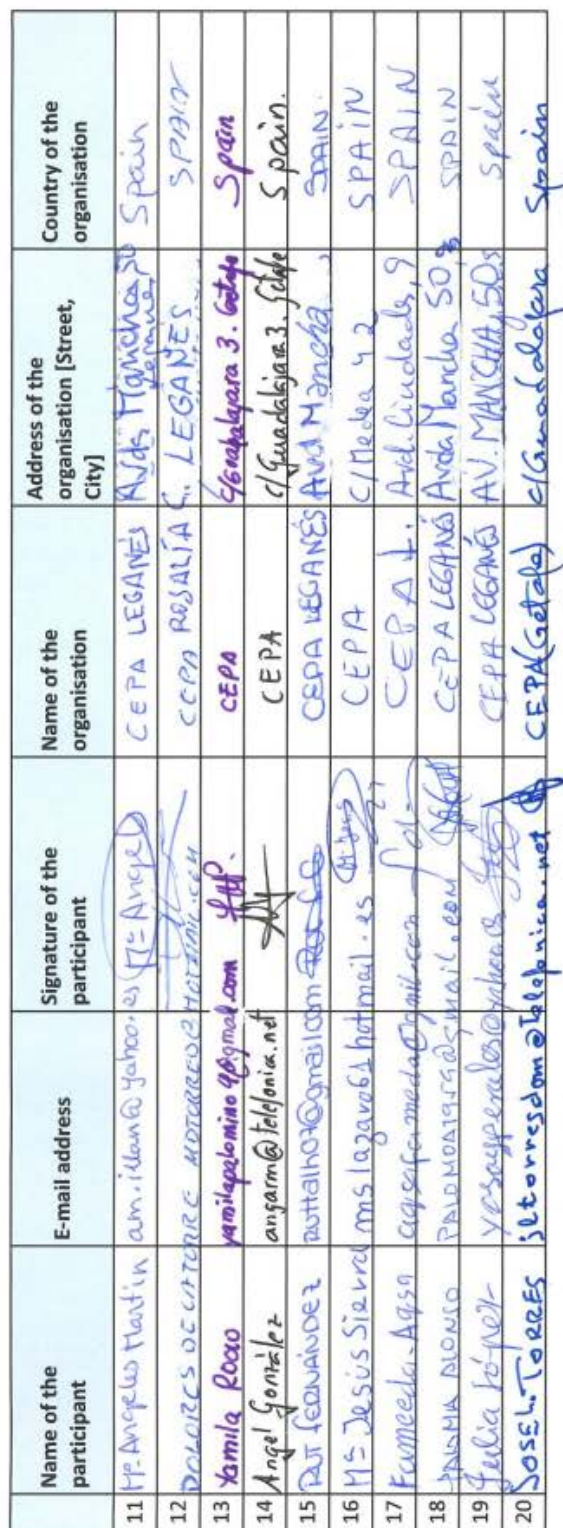 Name of the participant E-mail address Signature of the participant Name of the organisation Address of the organisation [Street, City] Country of the organisation
11 Mª Angeles Martin am.illan@yahoo.es Mª Angel CEPA LEGANÉS Avda Mancha 50 Spain
12 DOLORES DE HOTMAIL.COM CEPA ROSALÍA C. LEGANÉS SPAIN
13 Yamila Rocio CEPA C/Guadalajara 3. Getafe Spain
14 Angel González angarm@telefonica.net CEPA c/Guadalajara 3. Getafe Spain.
15 RUT FERNÁNDEZ CEPA LEGANÉS Avd. Mancha, SPAIN.
16 Mª Jesús Sierra mslazaro61hotmail.es CEPA C/Medea 42 SPAIN
17 CEPA L. Avd. Ciudades, 9 SPAIN
18 PALOMA ALONSO CEPA LEGANÉS Avda Mancha 50 SPAIN
19 Julia López CEPA LEGANÉS AV. MANCHA, 50 Spain
20 JOSE L. TORRES jltorresdom@telefonica.net CEPA (Getafe) c/Guadalajara Spain